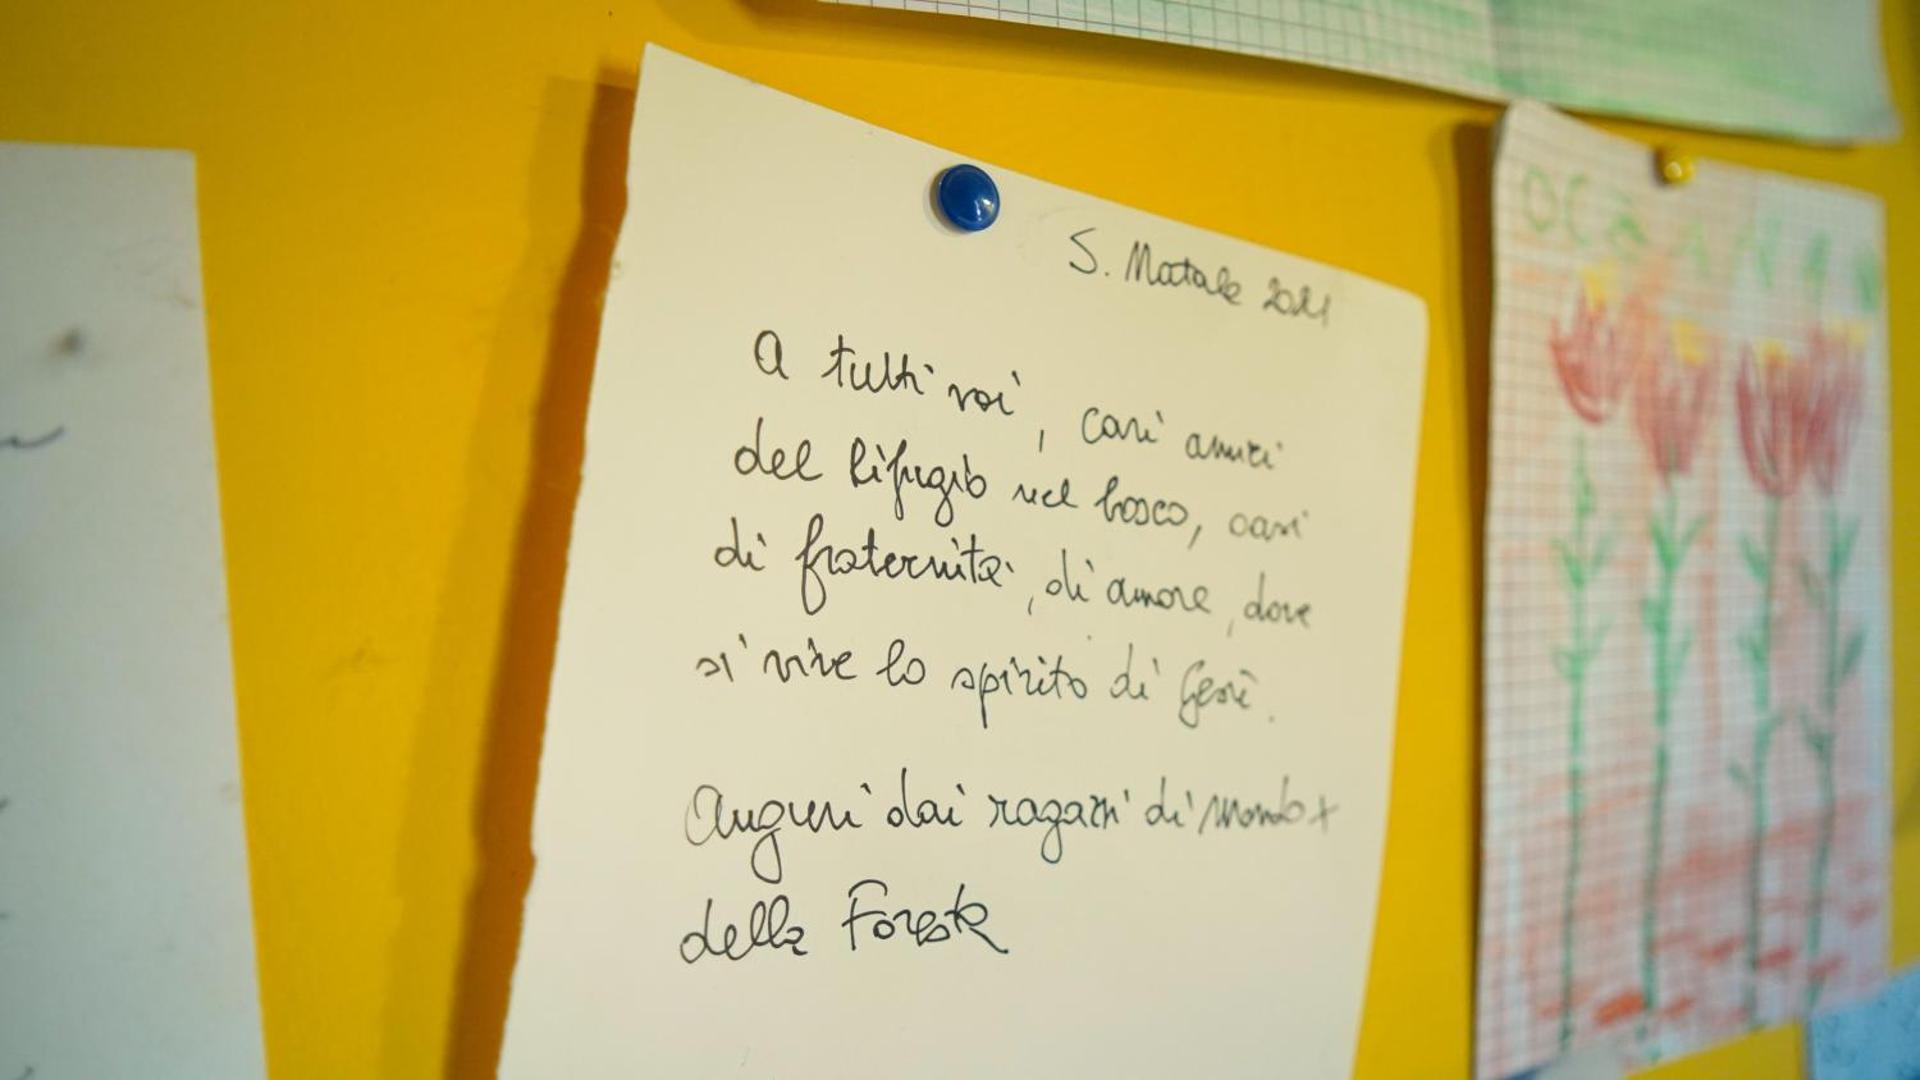 S. Natale 2021
A tutti voi, cari amici
del Rifugio nel bosco, oasi
di fraternità, di amore, dove
si vive lo spirito di Gesù.
Auguri dai ragazzi di Mondo X
della Foresta